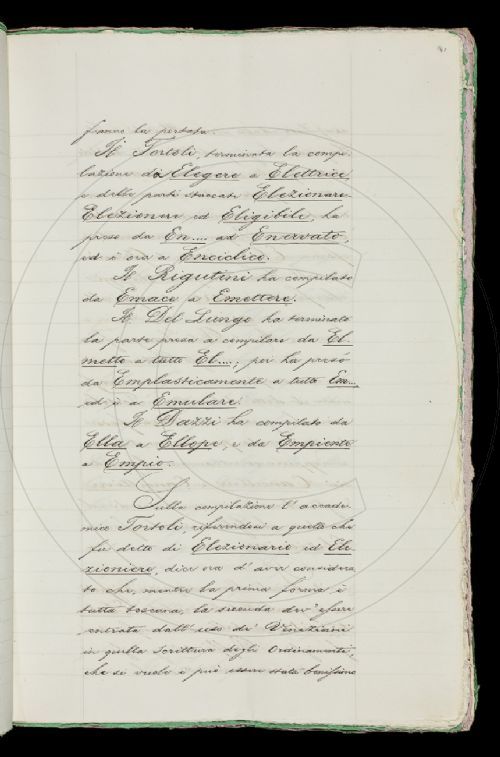 franno la portata.
Il Tortoli, terminata la compi-
lazione da Elegere a Elettrice
e delle parti staccate Elezionare-
Elezionere ed Eligibile, ha
preso da En.... ad Enervato,
ed è ora a Enciclico.
Il Rigutini ha compilato
da Emace a Emettere.
Il Del Lungo ha terminato
la parte presa a compilare da El-
metto a tutto El....; poi ha preso
da Emplasticamente a tutto Em...,
ed è a Emulare.
Il Dazzi ha compilato da
Ella a Ellope, e da Empiente
a Empio.
Sulla compilazione l'accade-
mico Tortoli, riferendosi a quello che
fu detto di Elezionario ed Ele-
zioniere, dice ora d'aver considera-
to che, mentre la prima forma è
tutta toscana, la seconda dev'essere
entrata dall'uso de' Veneziani
in quella scrittura degli Ordinamenti,
che si vuole e può essere stata benissimo